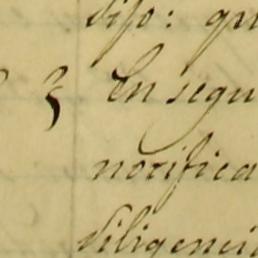 dijo: qu
3 En segu
notifica
diligenci